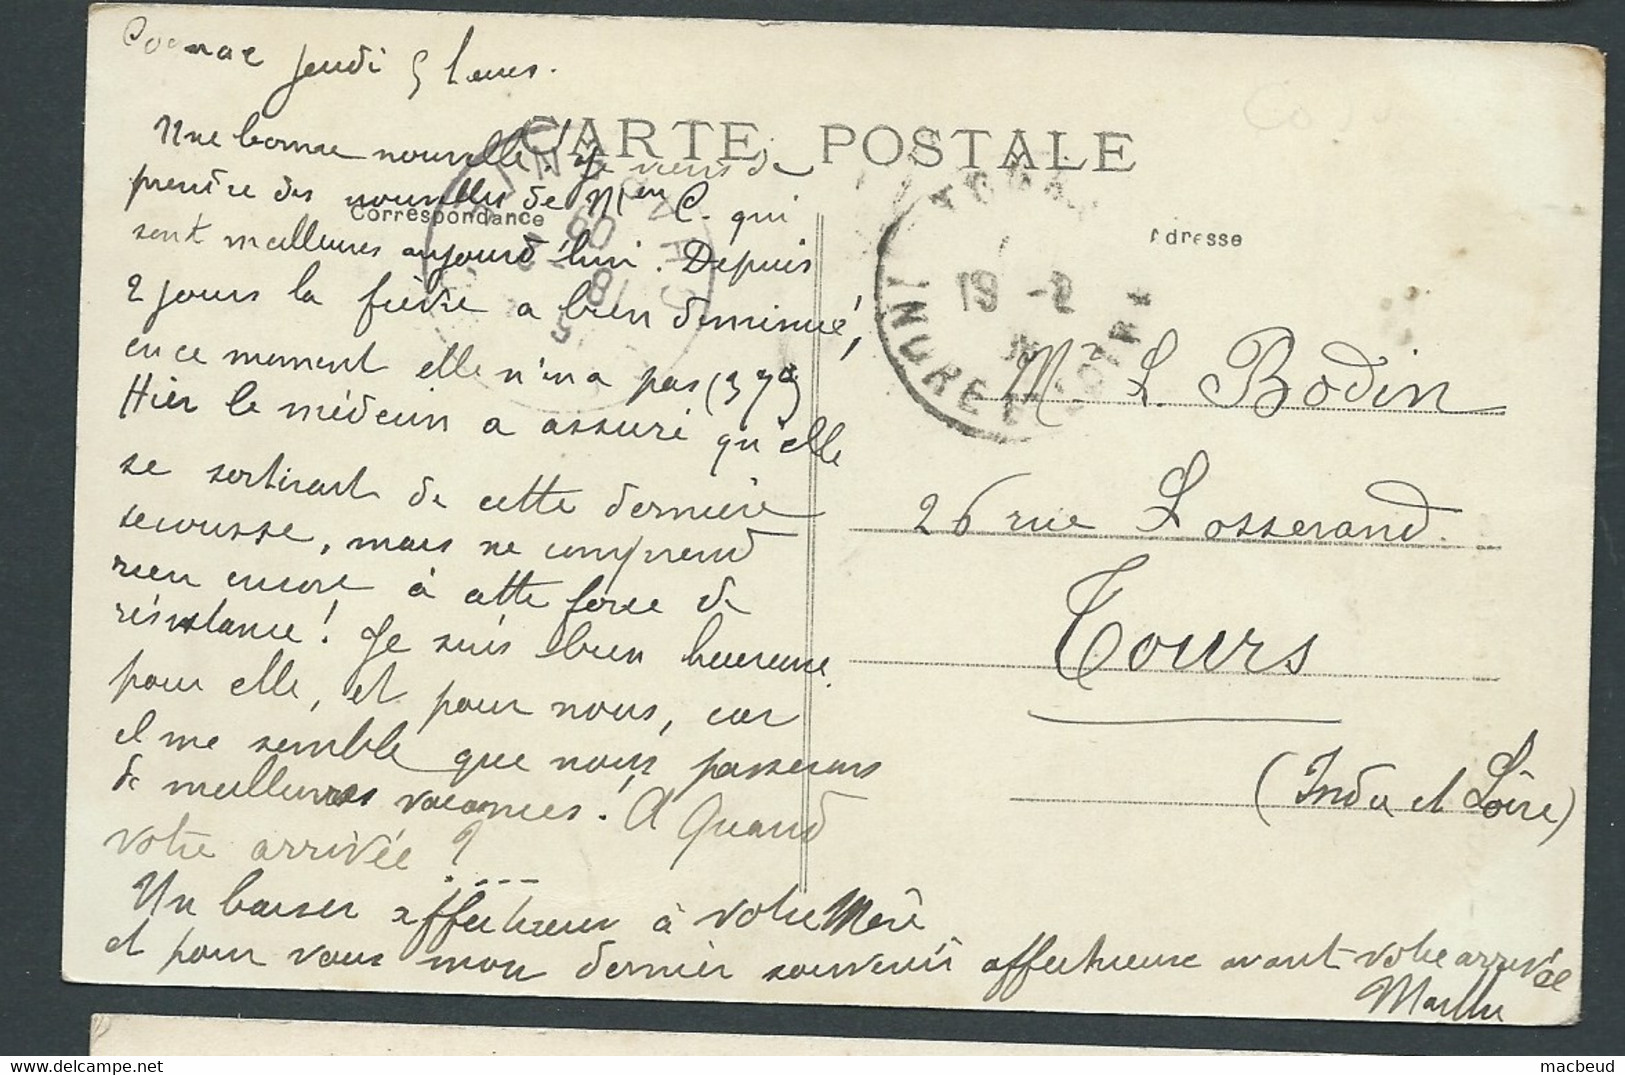 Cognac Jeudi 5 heures.
CARTE POSTALE
Une bonne nouvelle! Je viens de
prendre des nouvelles de Mme C. qui
Correspondance
sont meilleures aujourd'hui. Depuis
2 jours la fièvre a bien diminué,
en ce moment elle n'en a pas (37°)
Hier le médecin a assuré qu'elle
se sortirait de cette dernière
secousse, mais ne comprend
rien encore à cette force de
résistance! Je suis bien heureuse
pour elle, et pour nous, car
il me semble que nous passerons
de meilleures vacances. A Quand
votre arrivée?....
Un baiser affectueux à votre Mère
et pour vous mon dernier souvenir affectueux avant votre arrivée
Adresse
19 -2
INDRE ET LOIRE
Mr L. Bodin
26 rue Losserand.
Tours
(Indre et Loire)
macbeud